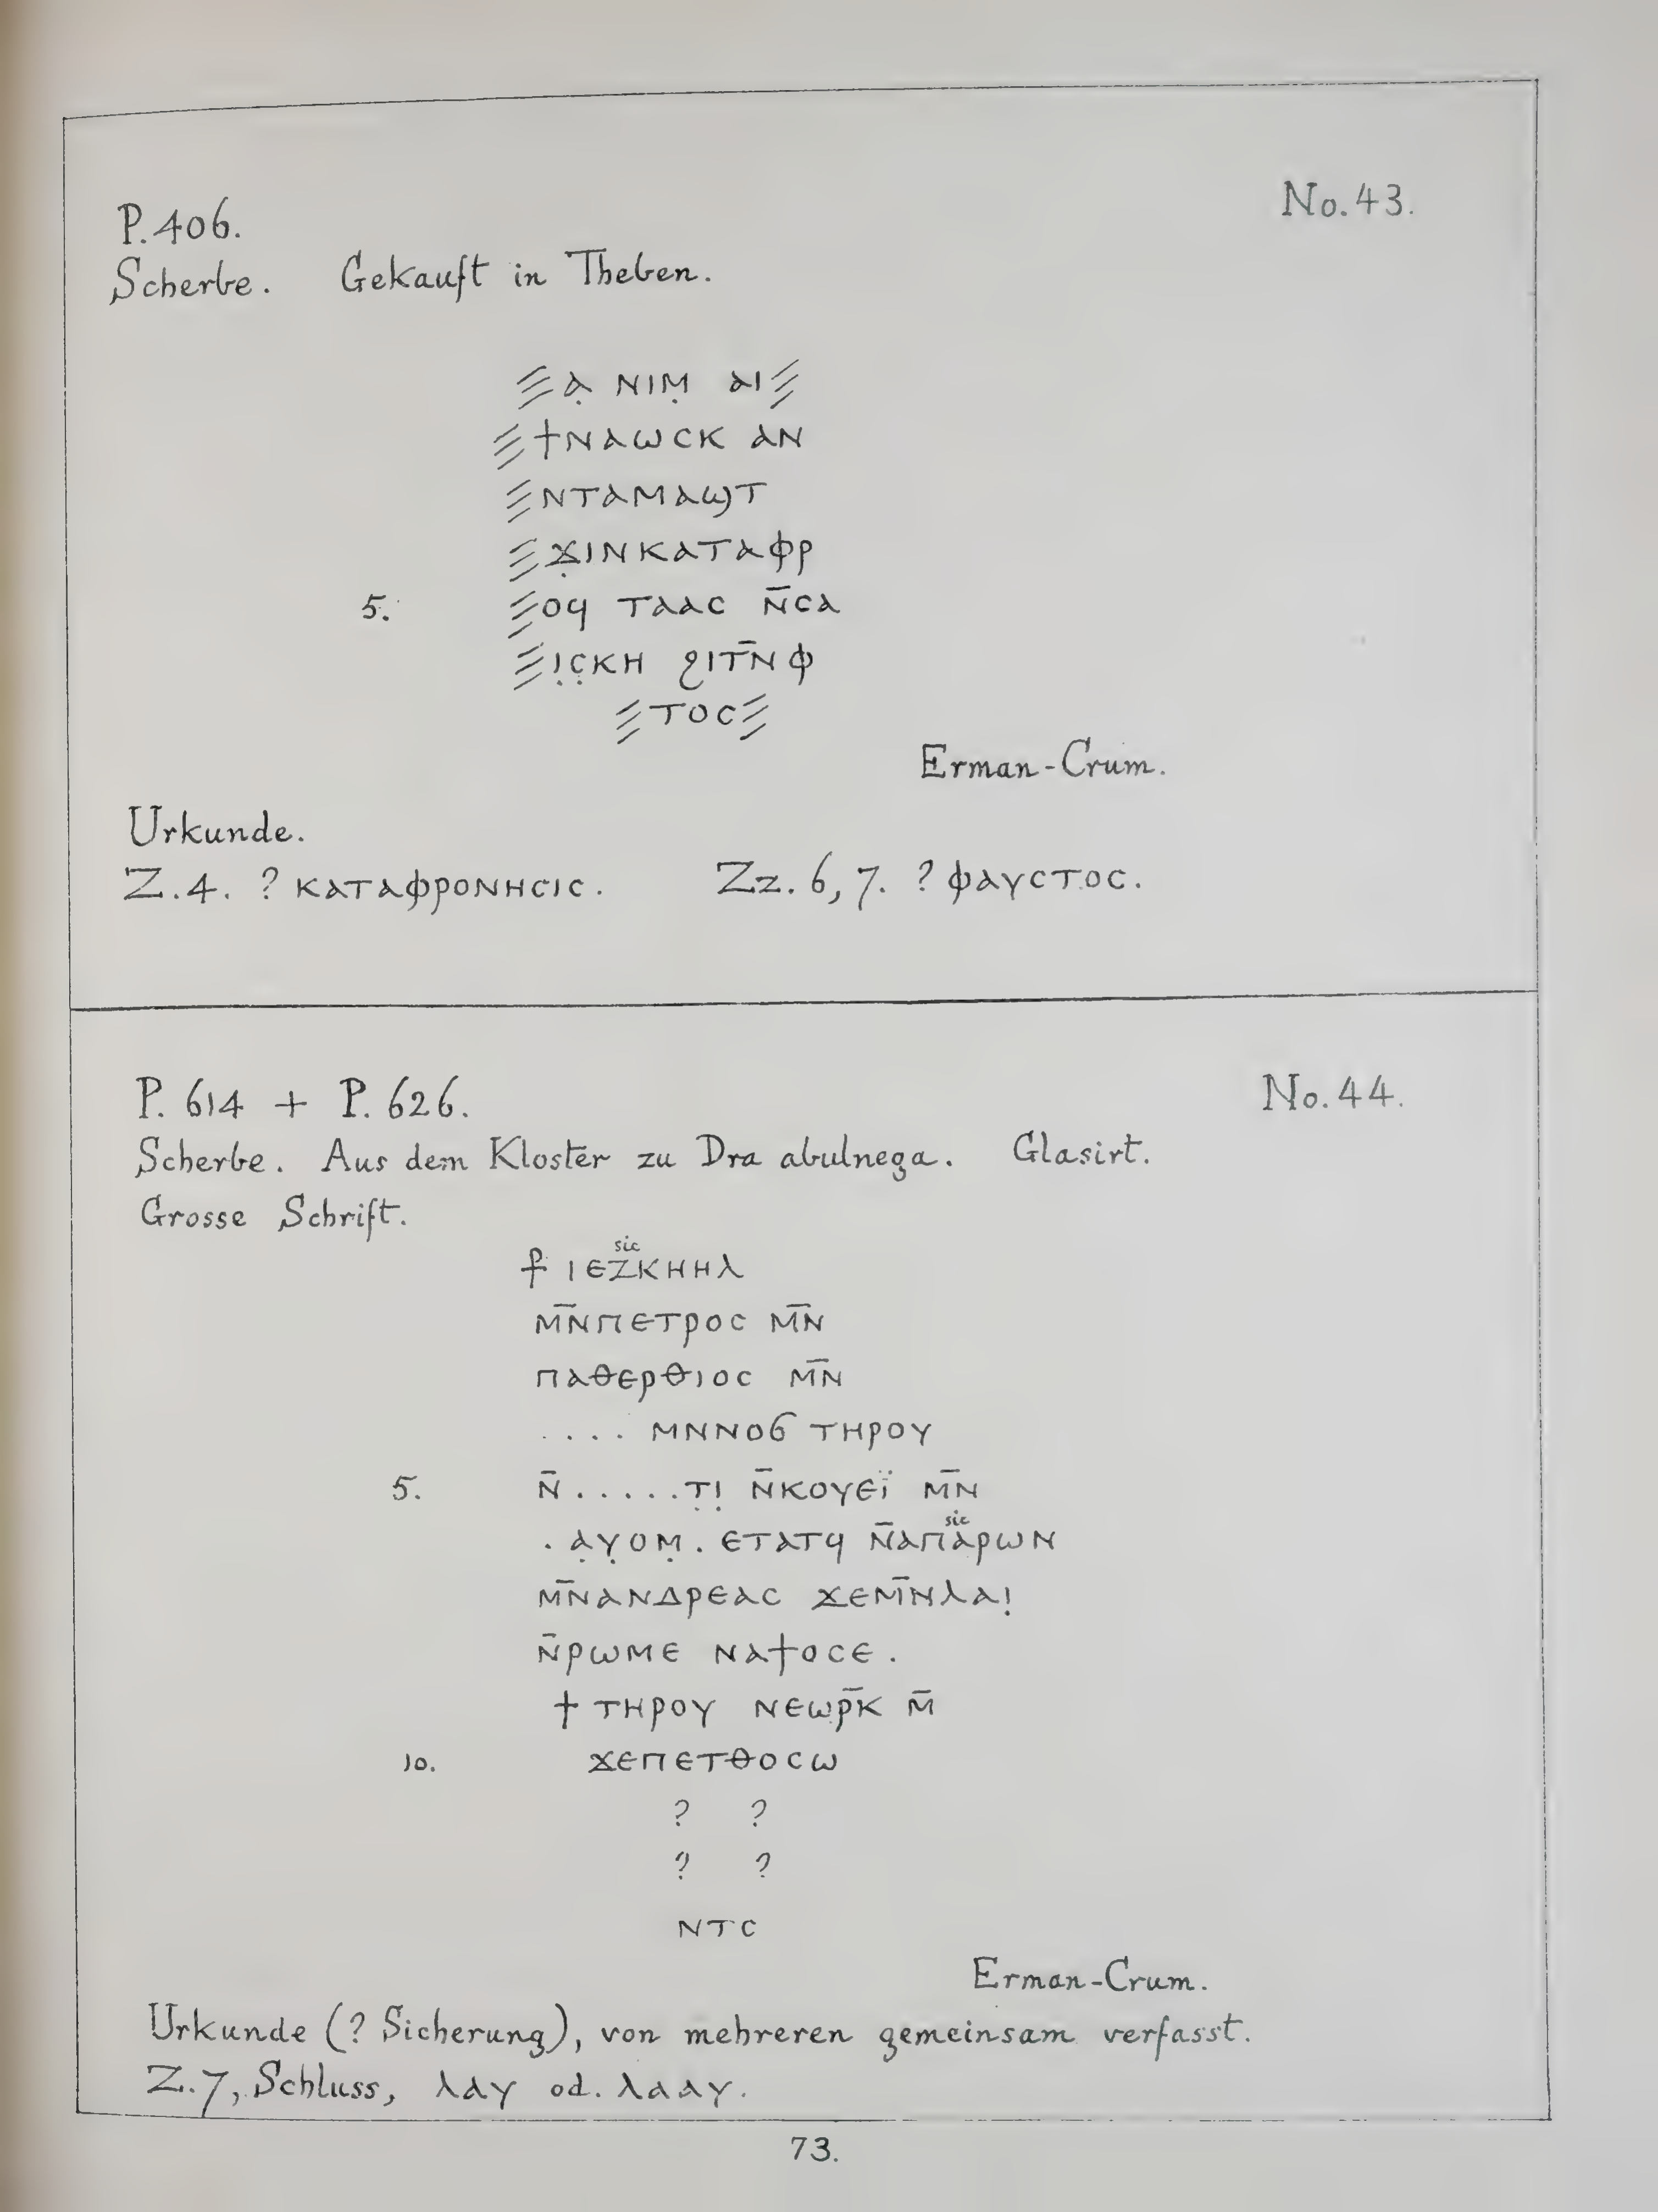 No. 43.
P. 406.
Scherbe. Gekauft in Theben.
⳽ⲁ̣ ⲛⲓⲙ̣ ⲁⲓ⳽
⳽ϯⲛⲁⲱⲥⲕ ⲁⲛ
⳽ⲛⲧⲁⲙⲁϣⲧ
⳽ϫ̣ⲓⲛⲕⲁⲧⲁⲫⲣ
5. ⳽ⲟϥ ⲧⲁⲁⲥ ⲛ̄ⲥⲁ
⳽ⲓ̣ⲥ̣ⲕⲏ ϩⲓⲧⲛ̄ⲫ
⳽ⲧⲟⲥ⳽
Erman-Crum.
Urkunde.
Z. 4. ? ⲕⲁⲧⲁⲫⲣⲟⲛⲏⲥⲓⲥ. Zz. 6, 7. ? ⲫⲁⲩⲥⲧⲟⲥ.
P. 614 + P. 626. No. 44.
Scherbe. Aus dem Kloster zu Dra abulnega. Glasirt.
Grosse Schrift.
sic
⳨ ⲓⲉⲍⲕⲏⲏⲗ
ⲙ̄ⲛ̄ⲡⲉⲧⲣⲟⲥ ⲙ̄ⲛ̄
ⲡⲁⲑⲉⲣⲑⲓⲟⲥ ⲙ̄ⲛ̄
.... ⲙⲛⲛⲟϭ ⲧⲏⲣⲟⲩ
5. ⲛ̄.....ⲧ̣ⲓ̣ ⲛ̄ⲕⲟⲩⲉⲓ̈ ⲙ̄ⲛ̄
sic
. ⲁ̣ⲩ̣ⲟⲙ̣. ⲉⲧⲁⲧϥ ⲛ̄ⲁⲡⲁⲣⲱⲛ
ⲙ̄ⲛ̄ⲁⲛⲇⲣⲉⲁⲥ ϫⲉⲙ̄ⲛ̄ⲗⲁⲓ̣
ⲛ̄ⲣⲱⲙⲉ ⲛⲁϯⲟⲥⲉ.
ϯ ⲧⲏⲣⲟⲩ ⲛⲉⲱⲣ̄ⲕ̄ ⲙ̄
10. ϫⲉⲡⲉⲧⲑⲟⲥⲱ
? ?
? ?
ⲛⲧⲥ
Erman-Crum.
Urkunde (? Sicherung), von mehreren gemeinsam verfasst.
Z. 7, Schluss, ⲗⲁⲩ od. ⲗⲁⲁⲩ.
73.